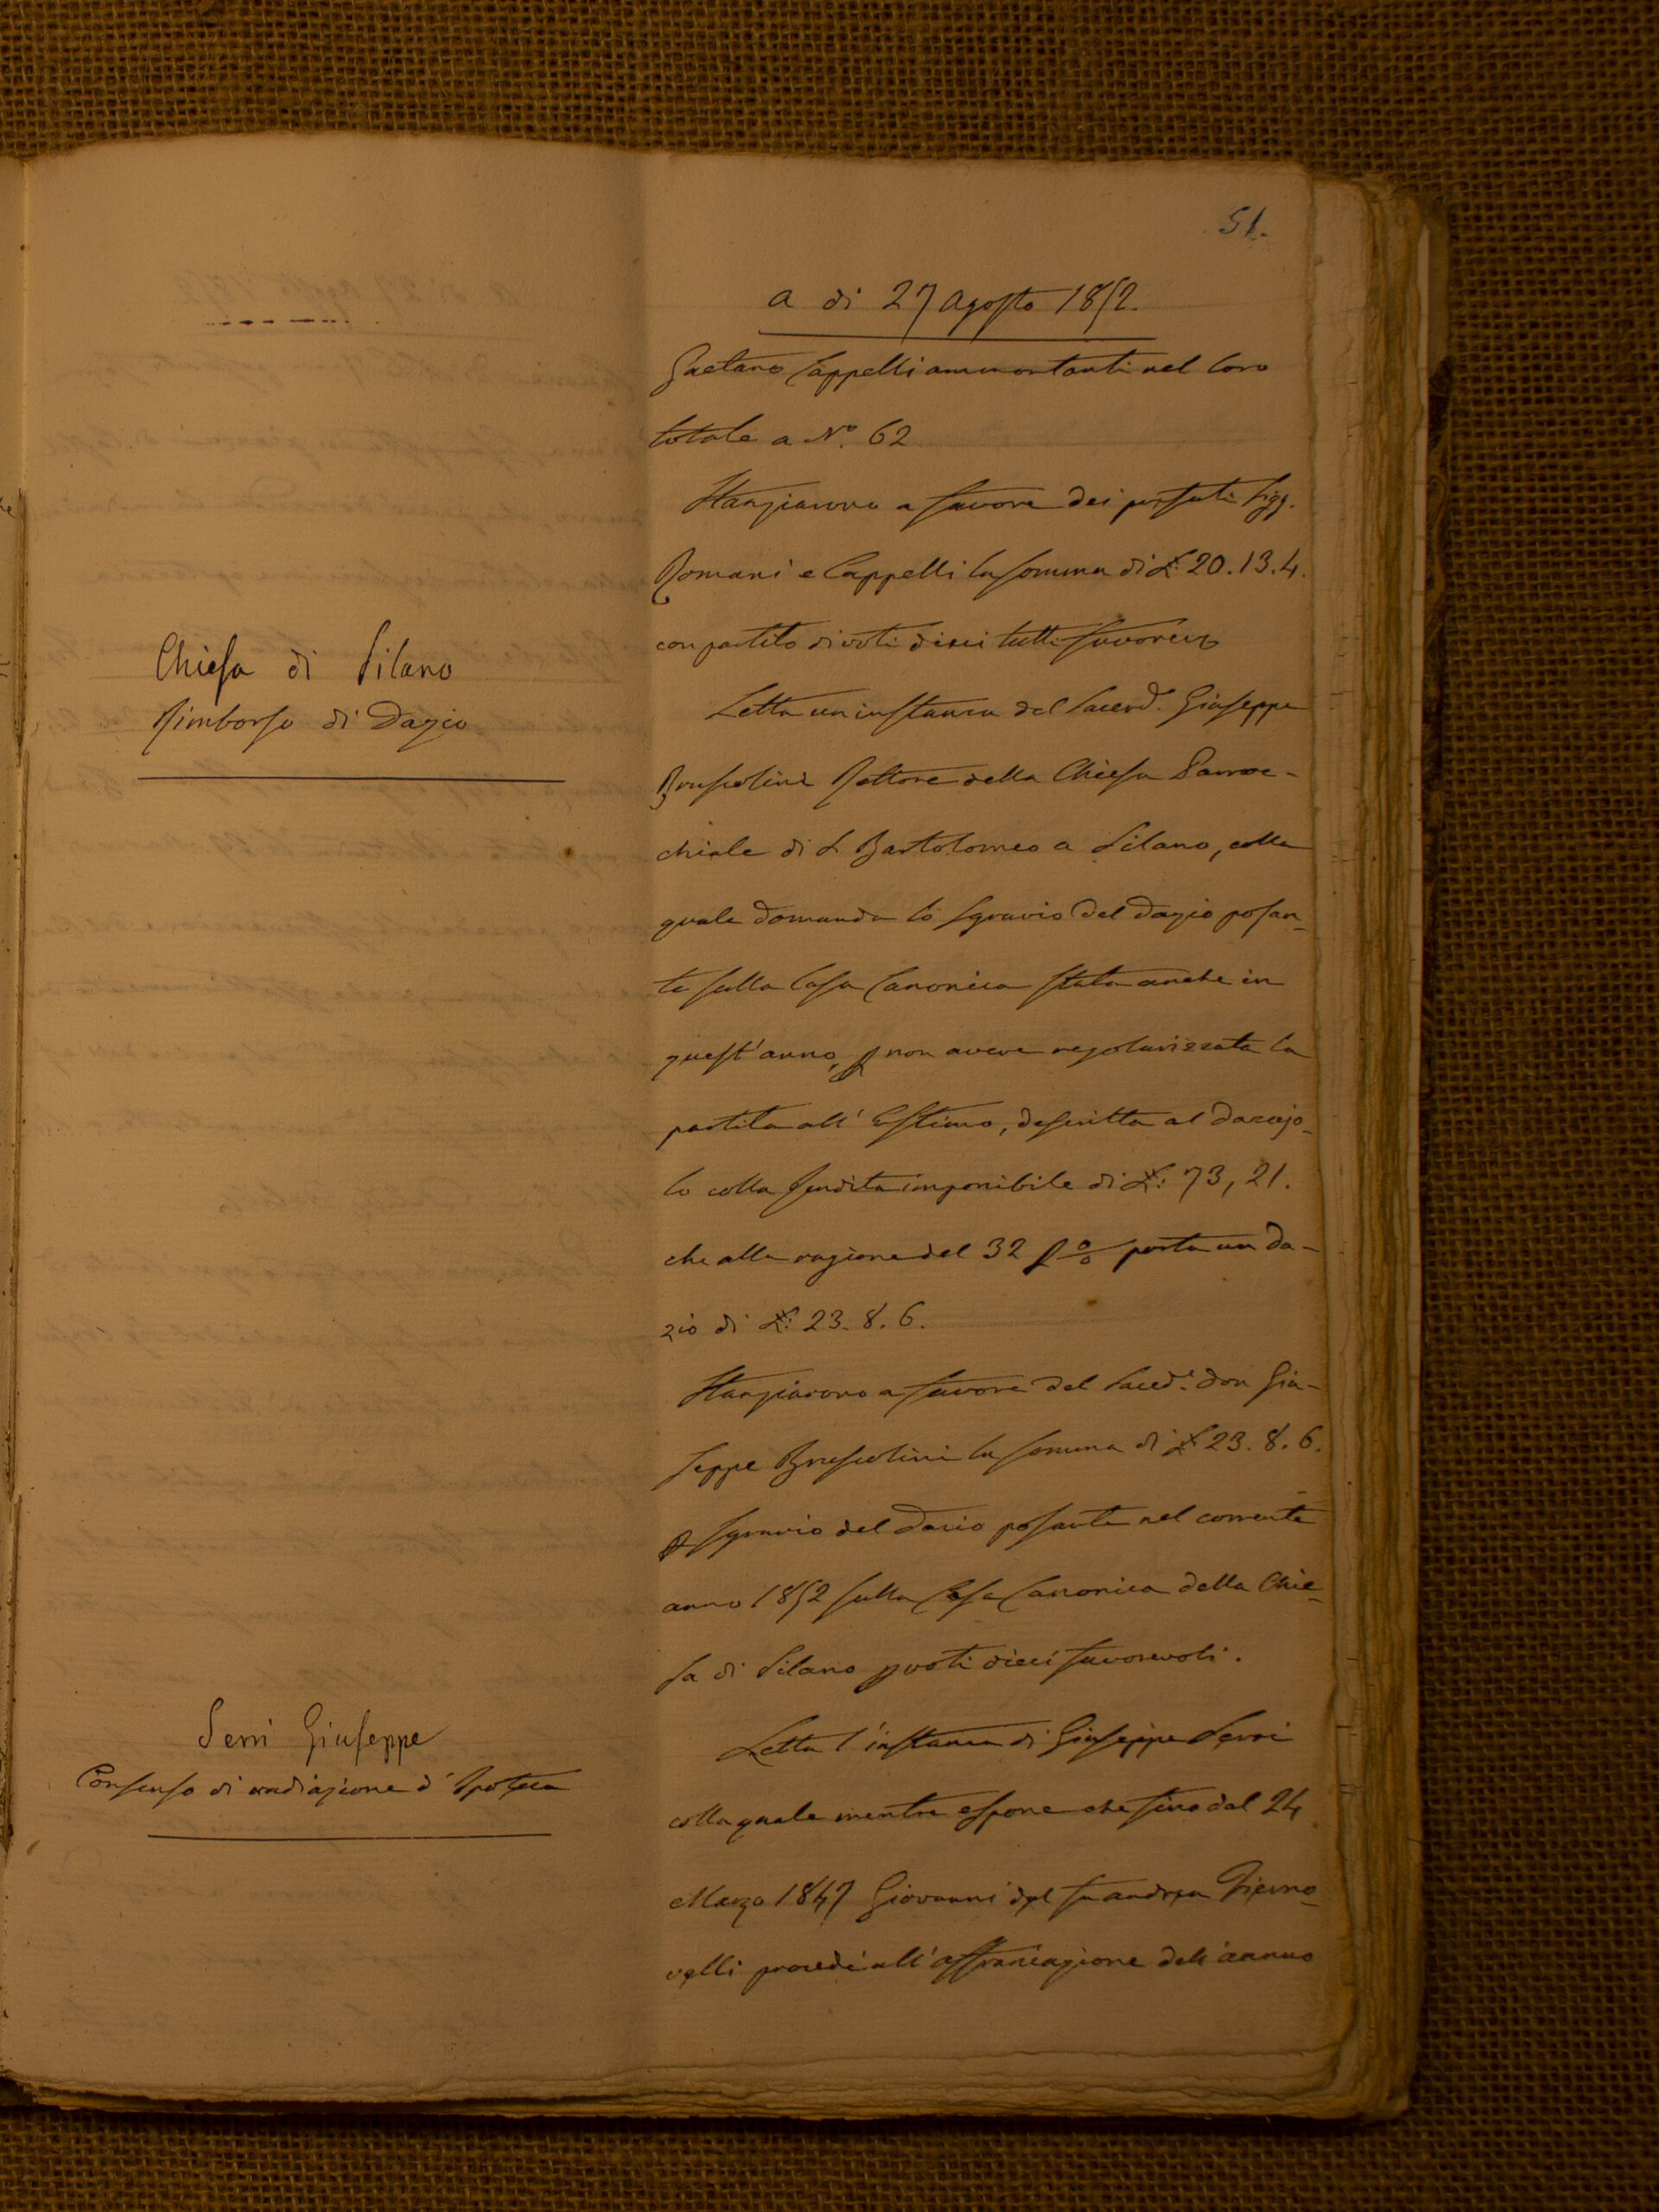 51.
a di 27 Agosto 1852.
Gaetano Cappelli ammontanti nel loro
totale a N.º 62
Stanziarono a favore dei Sigg.
Romani e Cappelli la somma di £: 20.13.4.
con partito di voti dieci tutti favorevo
Chiesa di Silano
Rimborso di Dazio
Letta un instanza del Sacerd. Giuseppe
Bruscolini Rettore della Chiesa Parroc-
chiale di S. Bartolomeo a Silano, colla
quale domanda lo sgravio del Dazio posan-
te sulla Casa Canonica stata anche in
quest'anno, p non avere regolarizzata la
partita all'Estimo, descritta al Dazajo-
lo colla Rendita imponibile di £: 73,21.
che alla ragione del 32 p % porta un Da-
zio di £: 23.8.6.
Stanziarono a favore del Sacerd. Don Giu-
seppe Bruscolini la somma di £ 23.8.6.
p sgravio del Dazio posante nel corrente
anno 1852 sulla Casa Canonica della Chie-
sa di Silano p voti dieci favorevoli.
Serri Giuseppe
Consenso di radiazione d'Ipoteca
Letta l'instanza di Giuseppe Serri
colla quale mentre espone che sino dal 24
Marzo 1847 Giovanni del fu Andrea
procedé all'affrancazione dell'annuo